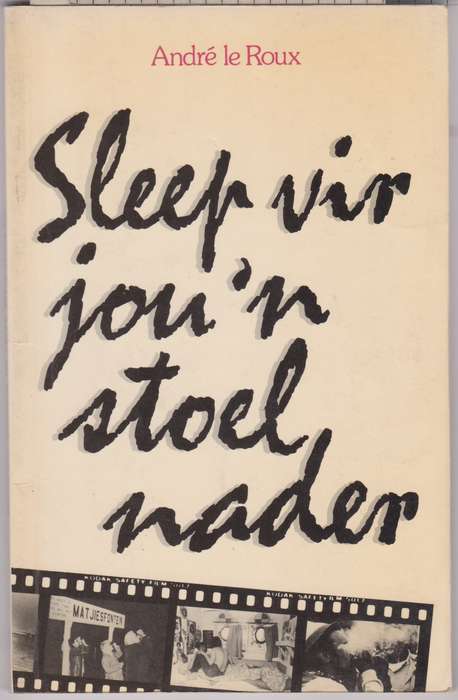 André le Roux
Sleep vir
jou 'n
stoel
nader
KODAK SAFETY FILM 5062
KODAK SAFETY FILM 5062
MATJIESFONTEIN